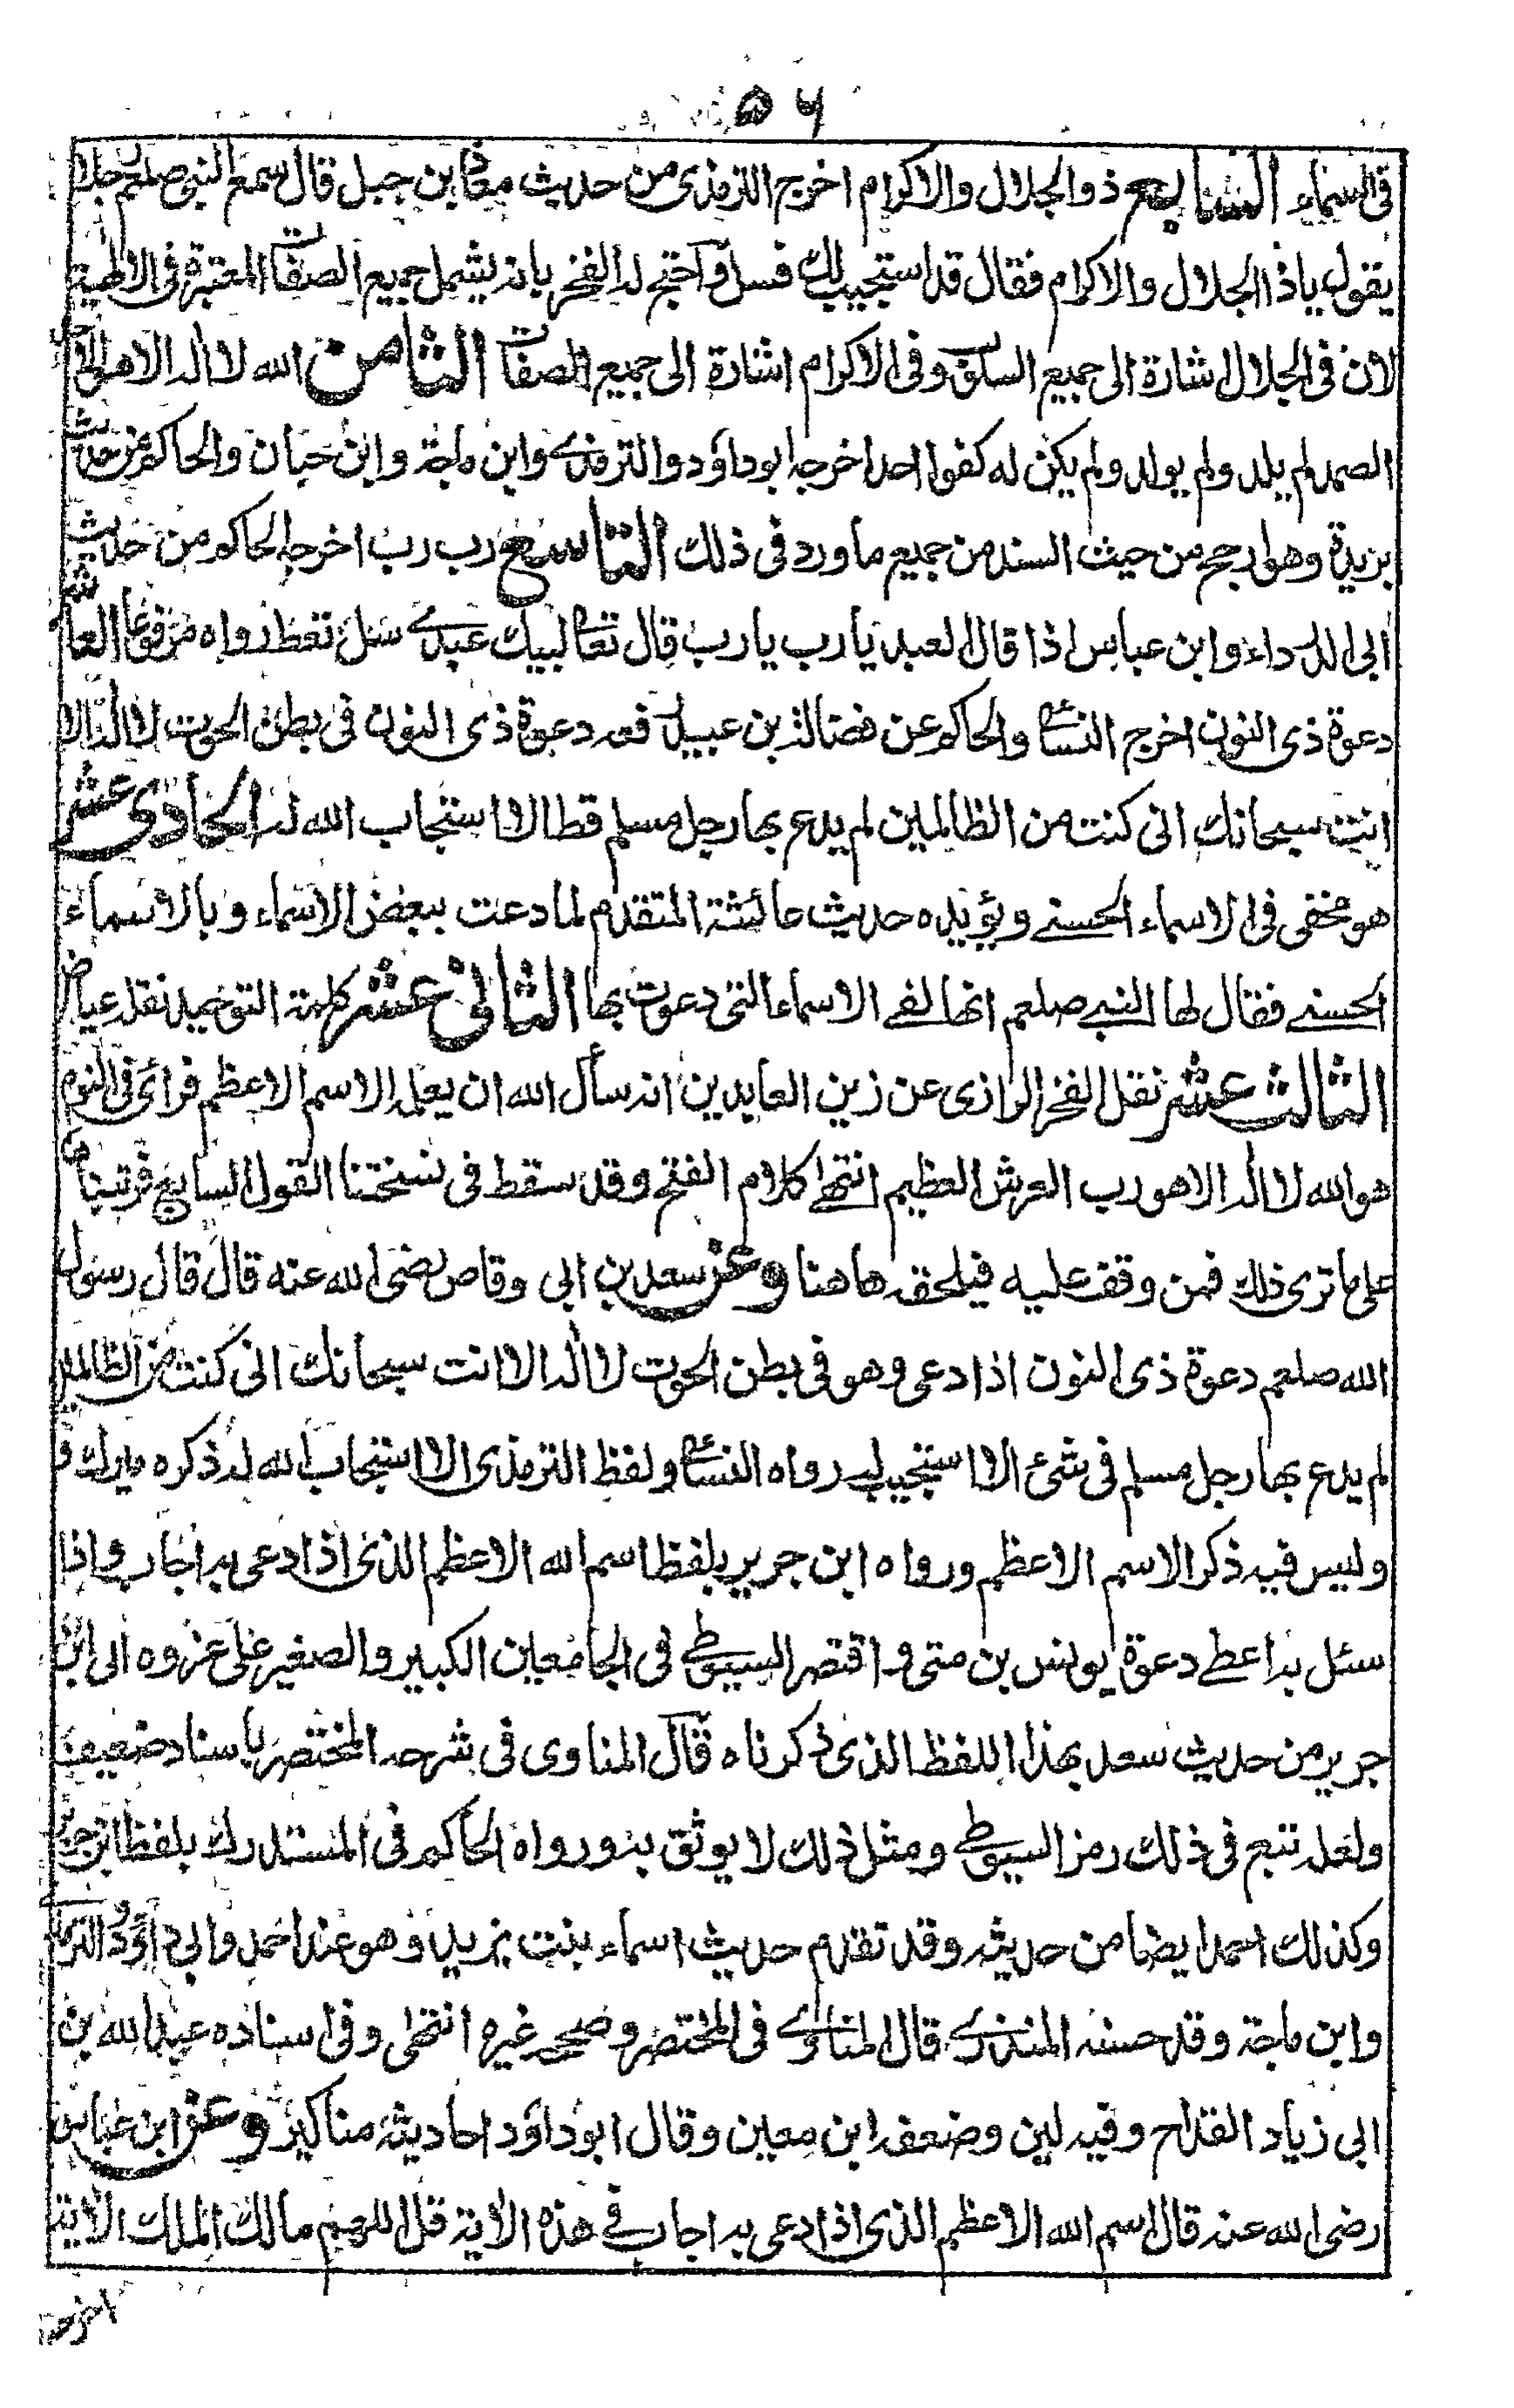 ٥٦
فى السماء السابع ذو الجلال والاكرام اخرج الترمذى من حديث معاذ بن جبل قال سمع النبى صلعم رجلا
يقول ياذا الجلال والاكرام فقال قد استجيب لك فسل واحتج له الفخر بانه يشمل جميع الصفات المعتبرة فى الالهية
لان فى الجلال اشارة الى جميع السلوب وفى الاكرام اشارة الى جميع الصفات الثامن الله لا اله الا هو الاحد
الصمد لم يلد ولم يولد ولم يكن له كفوا احد اخرجه ابو داؤد والترمذى وابن ماجة وابن حبان والحاكم من حديث
بريدة وهو ارجح من حيث السند من جميع ما ورد فى ذلك التاسع رب رب اخرجه الحاكم من حديث
ابى الدرداء وابن عباس اذا قال العبد يا رب يا رب قال تعالى لبيك عبدى سل تعط رواه مرفوعا العاشر
دعوة ذى النون اخرج النسائى والحاكم عن فضالة بن عبيد رفعه دعوة ذى النون فى بطن الحوت لا اله الا
انت سبحانك انى كنت من الظالمين لم يدع بها رجل مسلم قط الا استجاب الله له الحادى عشر
هو مخفى فى الاسماء الحسنى ويؤيده حديث عائشة المتقدم لما دعت ببعض الاسماء وبالاسماء
الحسنى فقال لها النبى صلعم انها لفى الاسماء التى دعوت بها الثانى عشر كلمة التوحيد نقله عياض
الثالث عشر نقل الفخر الرازى عن زين العابدين انه سأل الله ان يعلمه الاسم الاعظم فرأى فى النوم
هو الله لا اله الا هو رب العرش العظيم انتهى كلام الفتح وقد سقط فى نسختنا القول السابع فرتبناه
على ما ترى ذلك فمن وقف عليه فيلحقه هاهنا وعن سعد بن ابى وقاص رضى الله عنه قال قال رسول
الله صلعم دعوة ذى النون اذا دعى وهو فى بطن الحوت لا اله الا انت سبحانك انى كنت من الظالمين
لم يدع بها رجل مسلم فى شئ الا استجيب له رواه النسائى ولفظ الترمذى الا استجاب الله له ذكره ميرك و
وليس فيه ذكر الاسم الاعظم ورواه ابن جرير بلفظ اسم الله الاعظم الذى اذا دعى به اجاب واذا
سئل به اعطى دعوة يونس بن متى واقتصر السيوطى فى الجامعين الكبير والصغير على عزوه الى ابن
جرير من حديث سعد بهذا اللفظ الذى ذكرناه قال المناوى فى شرحه المختصر باسناد ضعيف
ولعله تبع فى ذلك رمز السيوطى ومثل ذلك لا يوثق به ورواه الحاكم فى المستدرك بلفظ ابن جرير
وكذلك احمد ايضا من حديثه وقد تقدم حديث اسماء بنت يزيد وهو عند احمد وابى داؤد والترمذى
وابن ماجة وقد حسنه المنذرى قال المناوى فى المختصر وصححه غيره انتهى وفى اسناده عبد الله بن
ابى زياد القداح وفيه لين وضعفه ابن معين وقال ابو داؤد احاديثه مناكير وعن ابن عباس
رضى الله عنه قال اسم الله الاعظم الذى اذا دعى به اجاب فى هذه الآية قل اللهم مالك الملك الآية
اخرجه